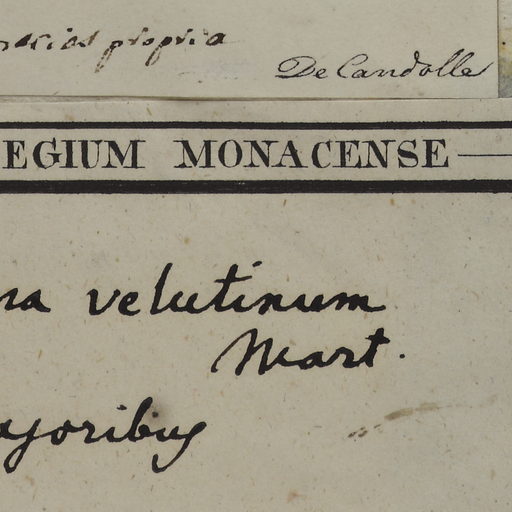 species propria
De Candolle
EGIUM MONACENSE
na velutinum
Mart.
ajoribus